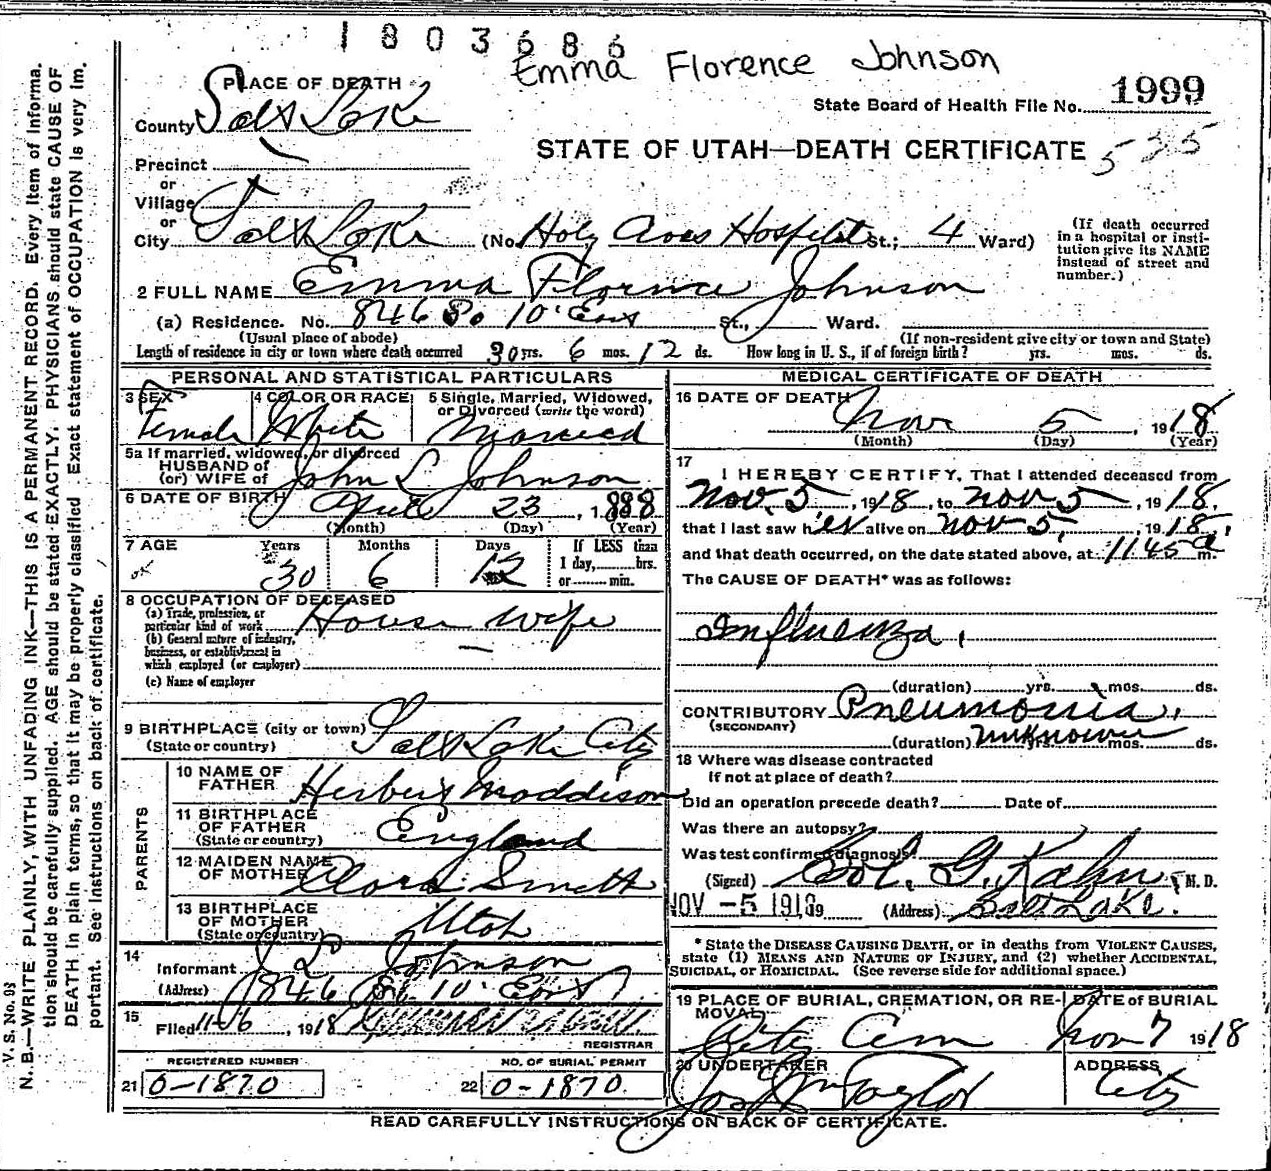 1803686
Emma Florence Johnson
PLACE OF DEATH
State Board of Health File No. 1999
County Salt Lake
STATE OF UTAH—DEATH CERTIFICATE 535
Precinct
or
Village
or
City Salt Lake (No. Holy Cross Hospital St.; 4 Ward)
(If death occurred in a hospital or insti-
tution give its NAME instead of street and number.)
2 FULL NAME Emma Florence Johnson
(a) Residence. No. 846 So 10' East St., Ward.
(Usual place of abode) (If non-resident give city or town and State)
Length of residence in city or town where death occurred 30 yrs. 6 mos. 12 ds. How long in U. S., if of foreign birth? yrs. mos. ds.
PERSONAL AND STATISTICAL PARTICULARS
3 SEX Female
4 COLOR OR RACE White
5 Single, Married, Widowed, or Divorced (write the word) Married
5a If married, widowed, or divorced
HUSBAND of
(or) WIFE of John L Johnson
6 DATE OF BIRTH April 23, 1888
(Month) (Day) (Year)
7 AGE Years Months Days If LESS than
1 day, hrs.
or min.
30 6 12
8 OCCUPATION OF DECEASED
(a) Trade, profession, or particular kind of work House wife
(b) General nature of industry, business, or establishment in which employed (or employer) —
(c) Name of employer
9 BIRTHPLACE (city or town) Salt Lake City
(State or country)
PARENTS
10 NAME OF FATHER Herbert Maddison
11 BIRTHPLACE OF FATHER England
(State or country)
12 MAIDEN NAME OF MOTHER Clara Smith
13 BIRTHPLACE OF MOTHER Utah
(State or country)
14 Informant J L Johnson
(Address) 846 So. 10' East
15 Filed 11-6, 1918
REGISTRAR
REGISTERED NUMBER
21 0-1870
NO. OF BURIAL PERMIT
22 0-1870.
MEDICAL CERTIFICATE OF DEATH
16 DATE OF DEATH Nov 5 1918
(Month) (Day) (Year)
17 I HEREBY CERTIFY, That I attended deceased from
Nov. 5, 1918, to Nov 5, 1918.
that I last saw her alive on Nov 5, 1918,
and that death occurred, on the date stated above, at 1145 a m.
The CAUSE OF DEATH* was as follows:
Influenza.
(duration) yrs. mos. ds.
CONTRIBUTORY Pneumonia.
(SECONDARY)
(duration) unknown yrs. mos. ds.
18 Where was disease contracted
if not at place of death?
Did an operation precede death? Date of
Was there an autopsy?
Was test confirmed diagnosis?
(Signed) Sol. G. Kahn, M. D.
NOV -5 1918 (Address) Salt Lake.
*State the DISEASE CAUSING DEATH, or in deaths from VIOLENT CAUSES,
state (1) MEANS AND NATURE OF INJURY, and (2) whether ACCIDENTAL,
SUICIDAL, or HOMICIDAL. (See reverse side for additional space.)
19 PLACE OF BURIAL, CREMATION, OR RE-
MOVAL City Cem
DATE of BURIAL Nov 7 1918
20 UNDERTAKER Jos Wm Taylor
ADDRESS City
READ CAREFULLY INSTRUCTIONS ON BACK OF CERTIFICATE.
V. S. No. 98
N. B.—WRITE PLAINLY, WITH UNFADING INK—THIS IS A PERMANENT RECORD. Every item of informa-
tion should be carefully supplied. AGE should be stated EXACTLY. PHYSICIANS should state CAUSE OF
DEATH in plain terms, so that it may be properly classified. Exact statement of OCCUPATION is very im-
portant. See instructions on back of certificate.